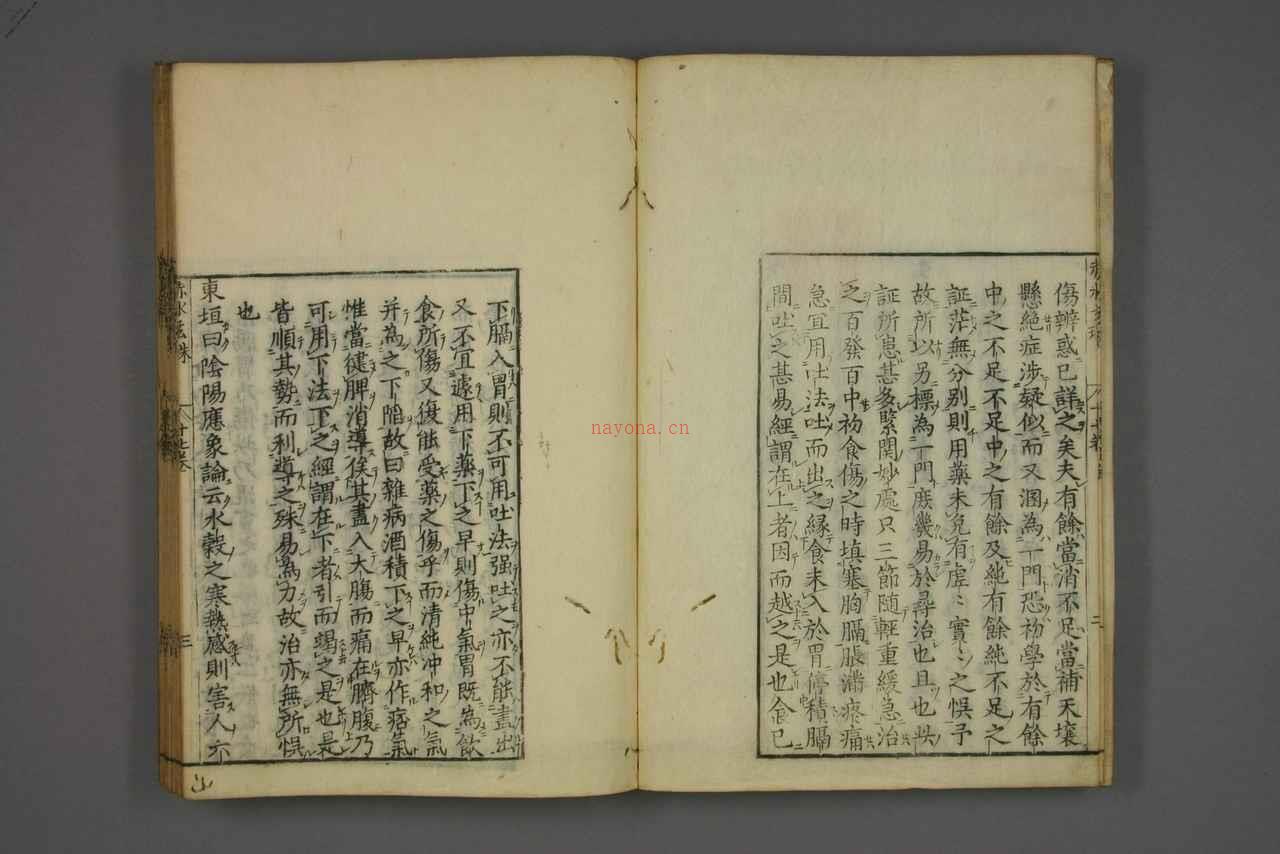 傷辨惑已詳之矣夫有餘當消不足當補天壤
懸絕症涉疑似而又溷為一門恐初學於有餘
中之不足不足中之有餘及純有餘純不足之
証茫無分别則用藥未免有虛〻實〻之悞予
故所以另標為一門庻幾易於尋治也且也此
証所患甚多緊関妙處只三節随輕重緩急治
之百發百中初食傷之時填塞胸膈脹滿疼痛
急宜用吐法吐而出之緣食未入於胃停積膈
間吐之甚易經謂在上者因而越之是也食已
赤水玄珠
十七卷
三
下膈入胃則不可用吐法强吐之亦不能盡出
又不宜遽用下藥下之早則傷中氣胃既為飲
食所傷又復能受藥之傷乎而清純冲和之氣
并為之下陷故曰雜病酒積下之早亦作痞氣
惟當健脾消導俟其盡入大腸而痛在臍腹乃
可用下法下之經謂在下者引而竭之是也是
皆順其勢而利導之殊易為力故治亦無所悞
也
東垣曰陰陽應象論云水穀之寒熱感則害人六
赤水玄珠
十七卷
三
山
nayona.cn